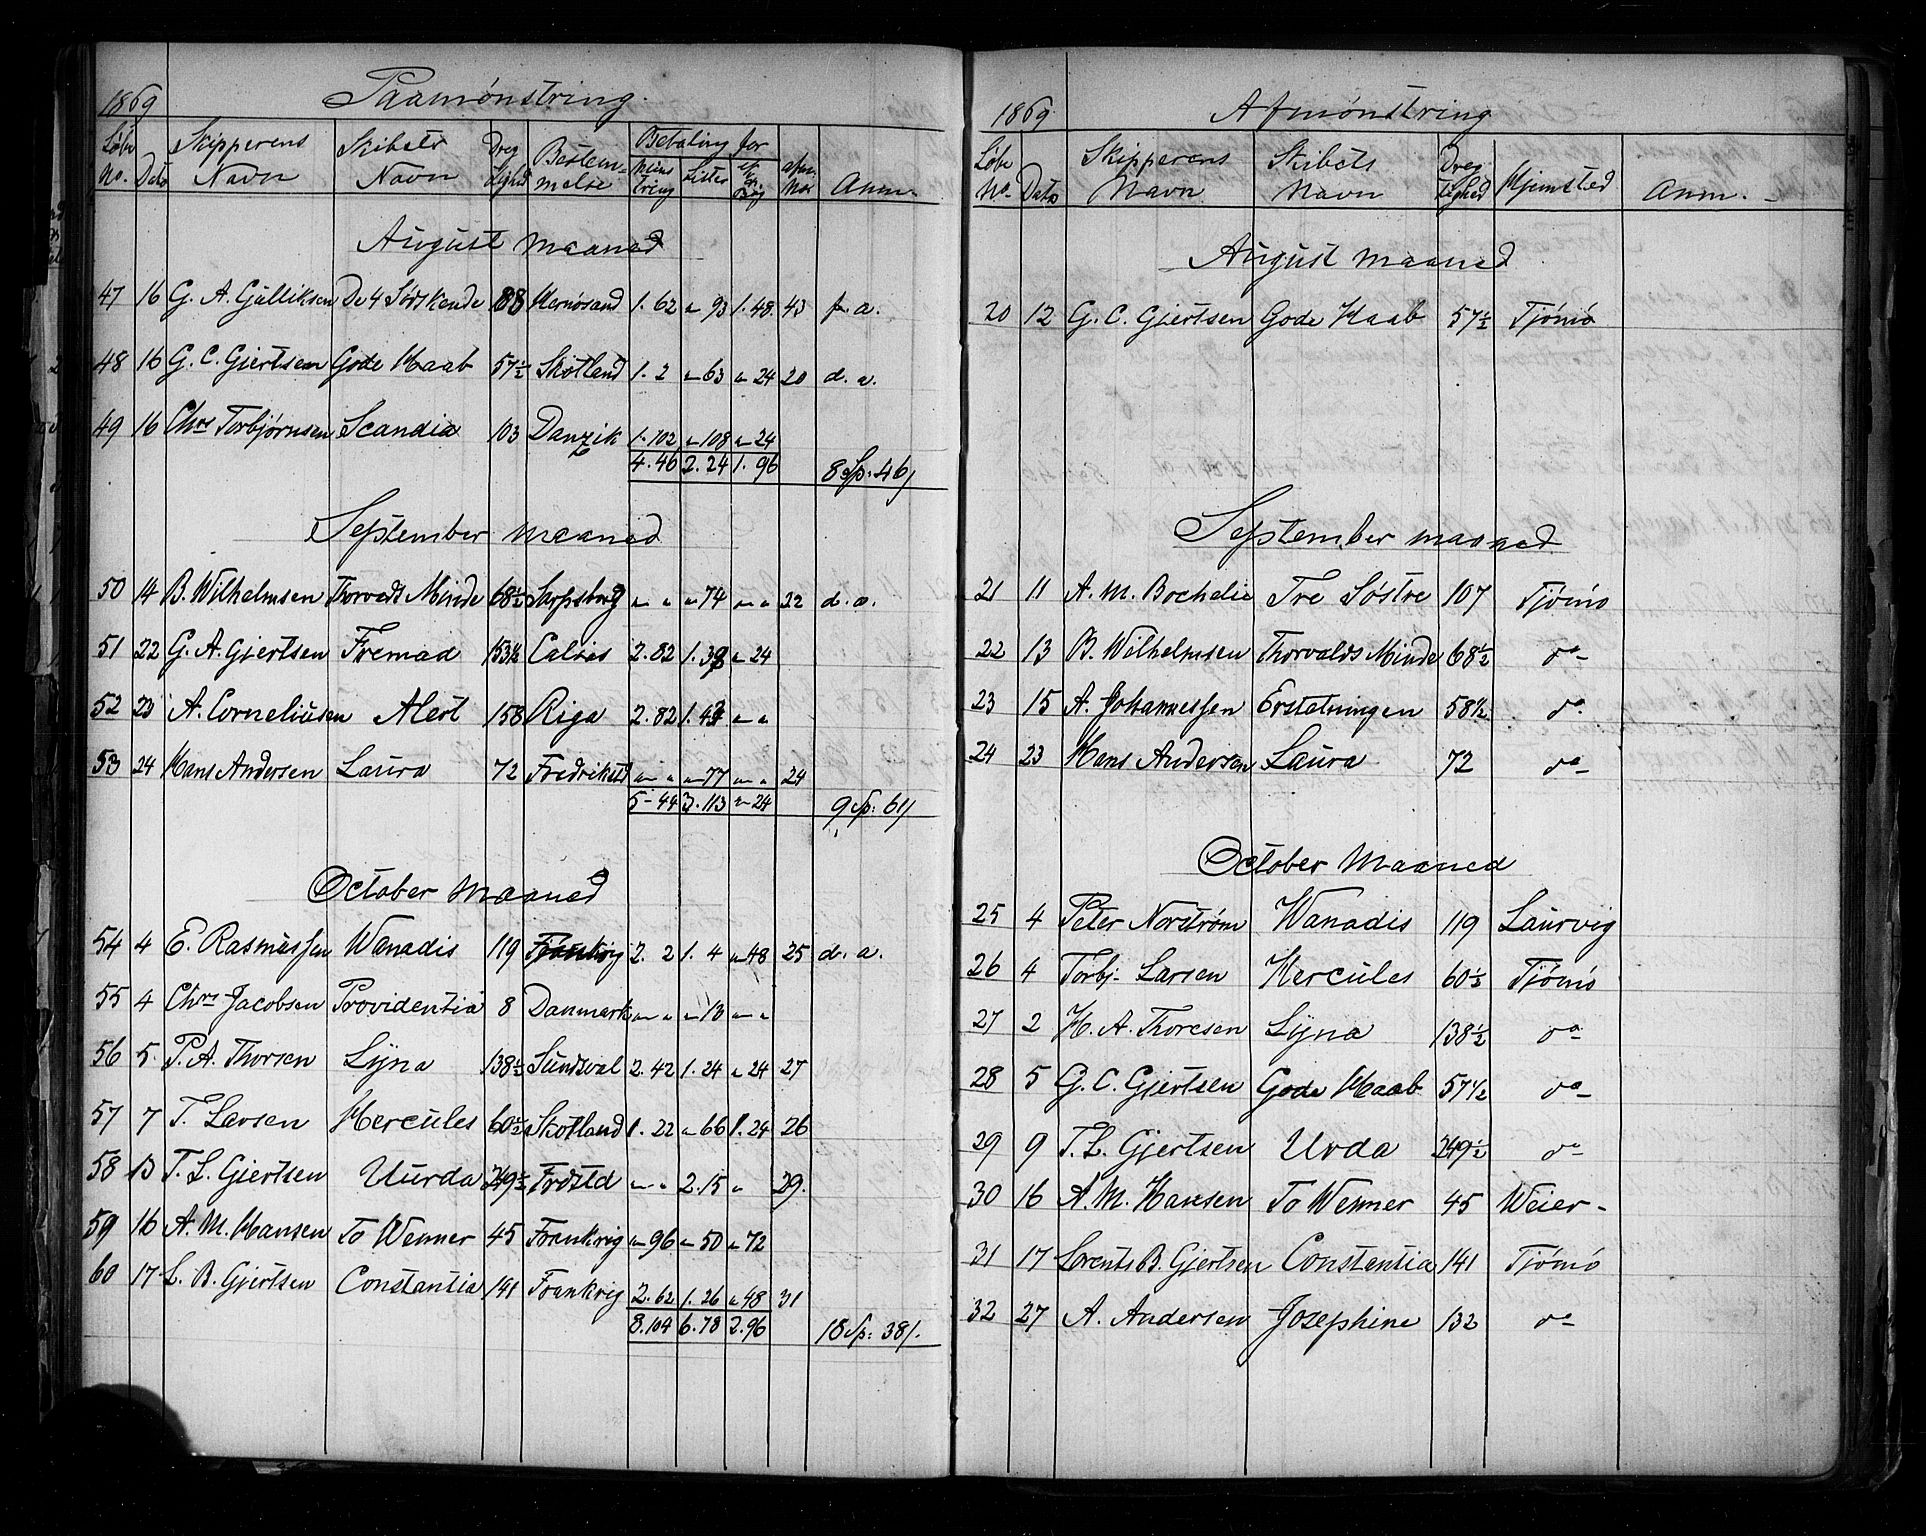 1869 Paamönstring.
Löbe No. Dato Skipperens Navn Skibets Navn Dreg tighed Bestem- melse Betaling for Möns tring Lister Anm.
August Maaned
47 16 G. A. Gulliksen De 4 Södskende 88 Hernösand 1. 62 " 93 1. 48. 43 f. a.
48 16 G. C. Gjertsen Gode Haab 57½ Skotland 1. 2 " 63 " 24 20 d. a.
49 16 Chrs Torbjörnsen Scandia 103 Danzik 1. 102 " 108 " 24
4. 46 2. 24 1. 96 8 Sp: 46/
September Maaned
50 14 B. Wilhelmsen Thorvalds Minde 68½ Sarpsborg " " " 74 " " 22 d. a.
51 22 G. A. Gjertsen Fremad 153½ Calais 2. 82 1. 39 " 24
52 23 A. Corneliusen Alert 158 Riga 2. 82 1. 43 " "
53 24 Hans Andersen Laura 72 Fredrikstd " " " 77 " " 24
5 - 44 3. 113 " 24 9 Sp: 61/
October Maaned
54 4 E. Rasmussen Wanadis 119 Frankrig 2. 2 1. 4 " 48 25 d. a.
55 4 Chrs Jacobsen Providentia 8 Danmark " " " 13 " "
56 5. P. A. Thorsen Lyna 138½ Sundsval 2. 42 1. 24 " 24 27
57 7 T. Larsen Hercules 60½ Skotland 1. 22 " 66 1. 24 26
58 13 T. L. Gjertsen Uurda 249½ Frdstd " " 2. 15 " 29.
59 16 A. M. Hansen To Wenner 45 Frankrig " 96 " 50 " 72
60 17 L. B. Gjertsen Constantia 141 Frankrig 2. 62 1. 26 " 48 31
8. 104 6. 78 2. 96 18 Sp: 38/.
1869. Afmönstring
Löbe No. Dato Skipperens Navn Skibets Navn Dreg tighed Hjemsted Anm. -
August Maaned
20 12 G. C. Gjertsen Gode Haab 57½ Tjömö
September Maaned
21 11 A. M. Bochelie Tre Söstre 107 Tjömö
22 13 B. Wilhelmsen Thorvalds Minde 68½ do
23 15 A. Johannessen Erstatningen 58½ do
24 23 Hans Andersen Laura 72 do
October Maaned
25 4 Peter Norström Wanadis 119 Laurvig
26 4 Torbj. Larsen Hercules 60½ Tjömö
27 2 H. A. Thoresen Lyna 138½ do
28 5 G. C. Gjertsen Gode Haab 57½ do
29 9 T. L. Gjertsen Urda 249½ do
30 16 A. M. Hansen To Wenner 45 Weier -
31 17 Lorents B. Gjertsen Constantia 141 Tjömö
32 27 A. Andersen Josephine 132 do